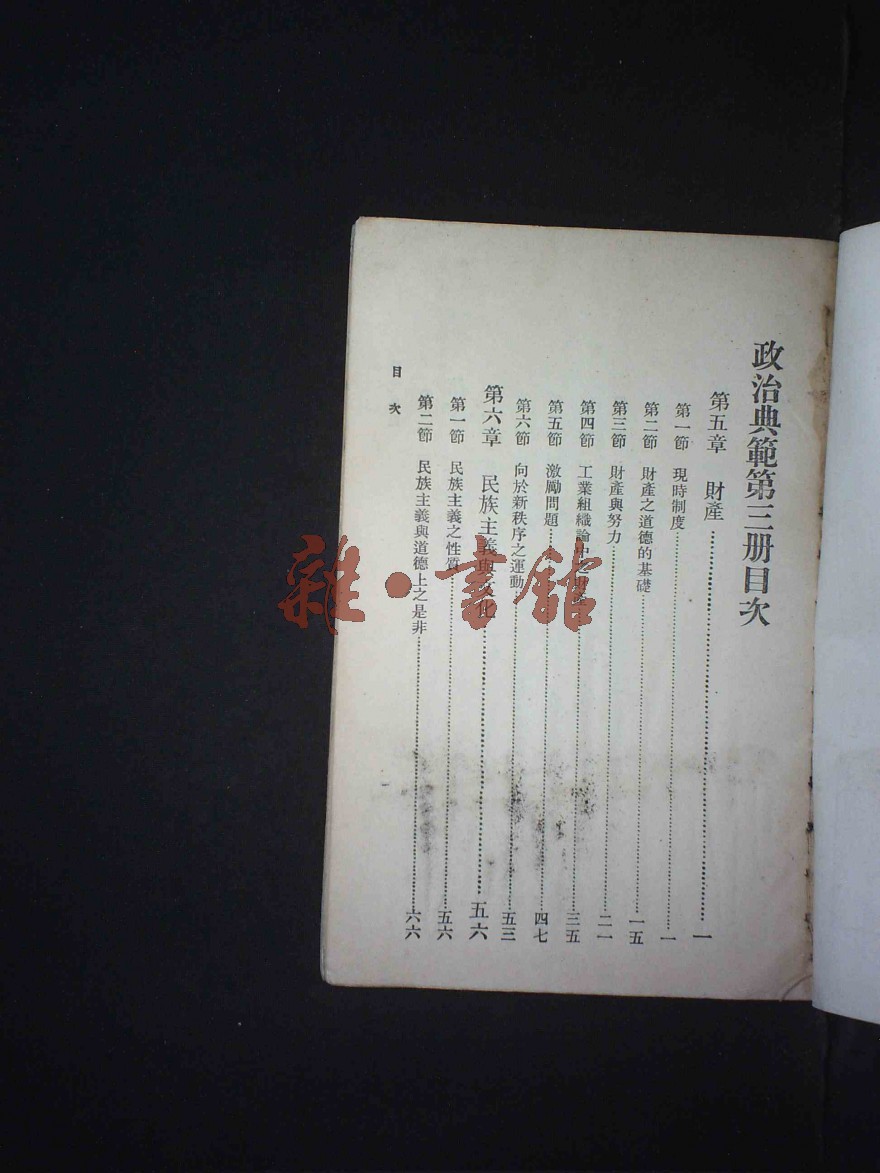 政治典範第三册目次
第五章 財產……一
第一節 現時制度……一
第二節 財產之道德的基礎……一五
第三節 財產與努力……二一
第四節 工業組織論中之財產……三五
第五節 激勵問題……四七
第六節 向於新秩序之運動……五三
第六章 民族主義與文化……五六
第一節 民族主義之性質……五六
第二節 民族主義與道德上之是非……六六
目次
雜·書館